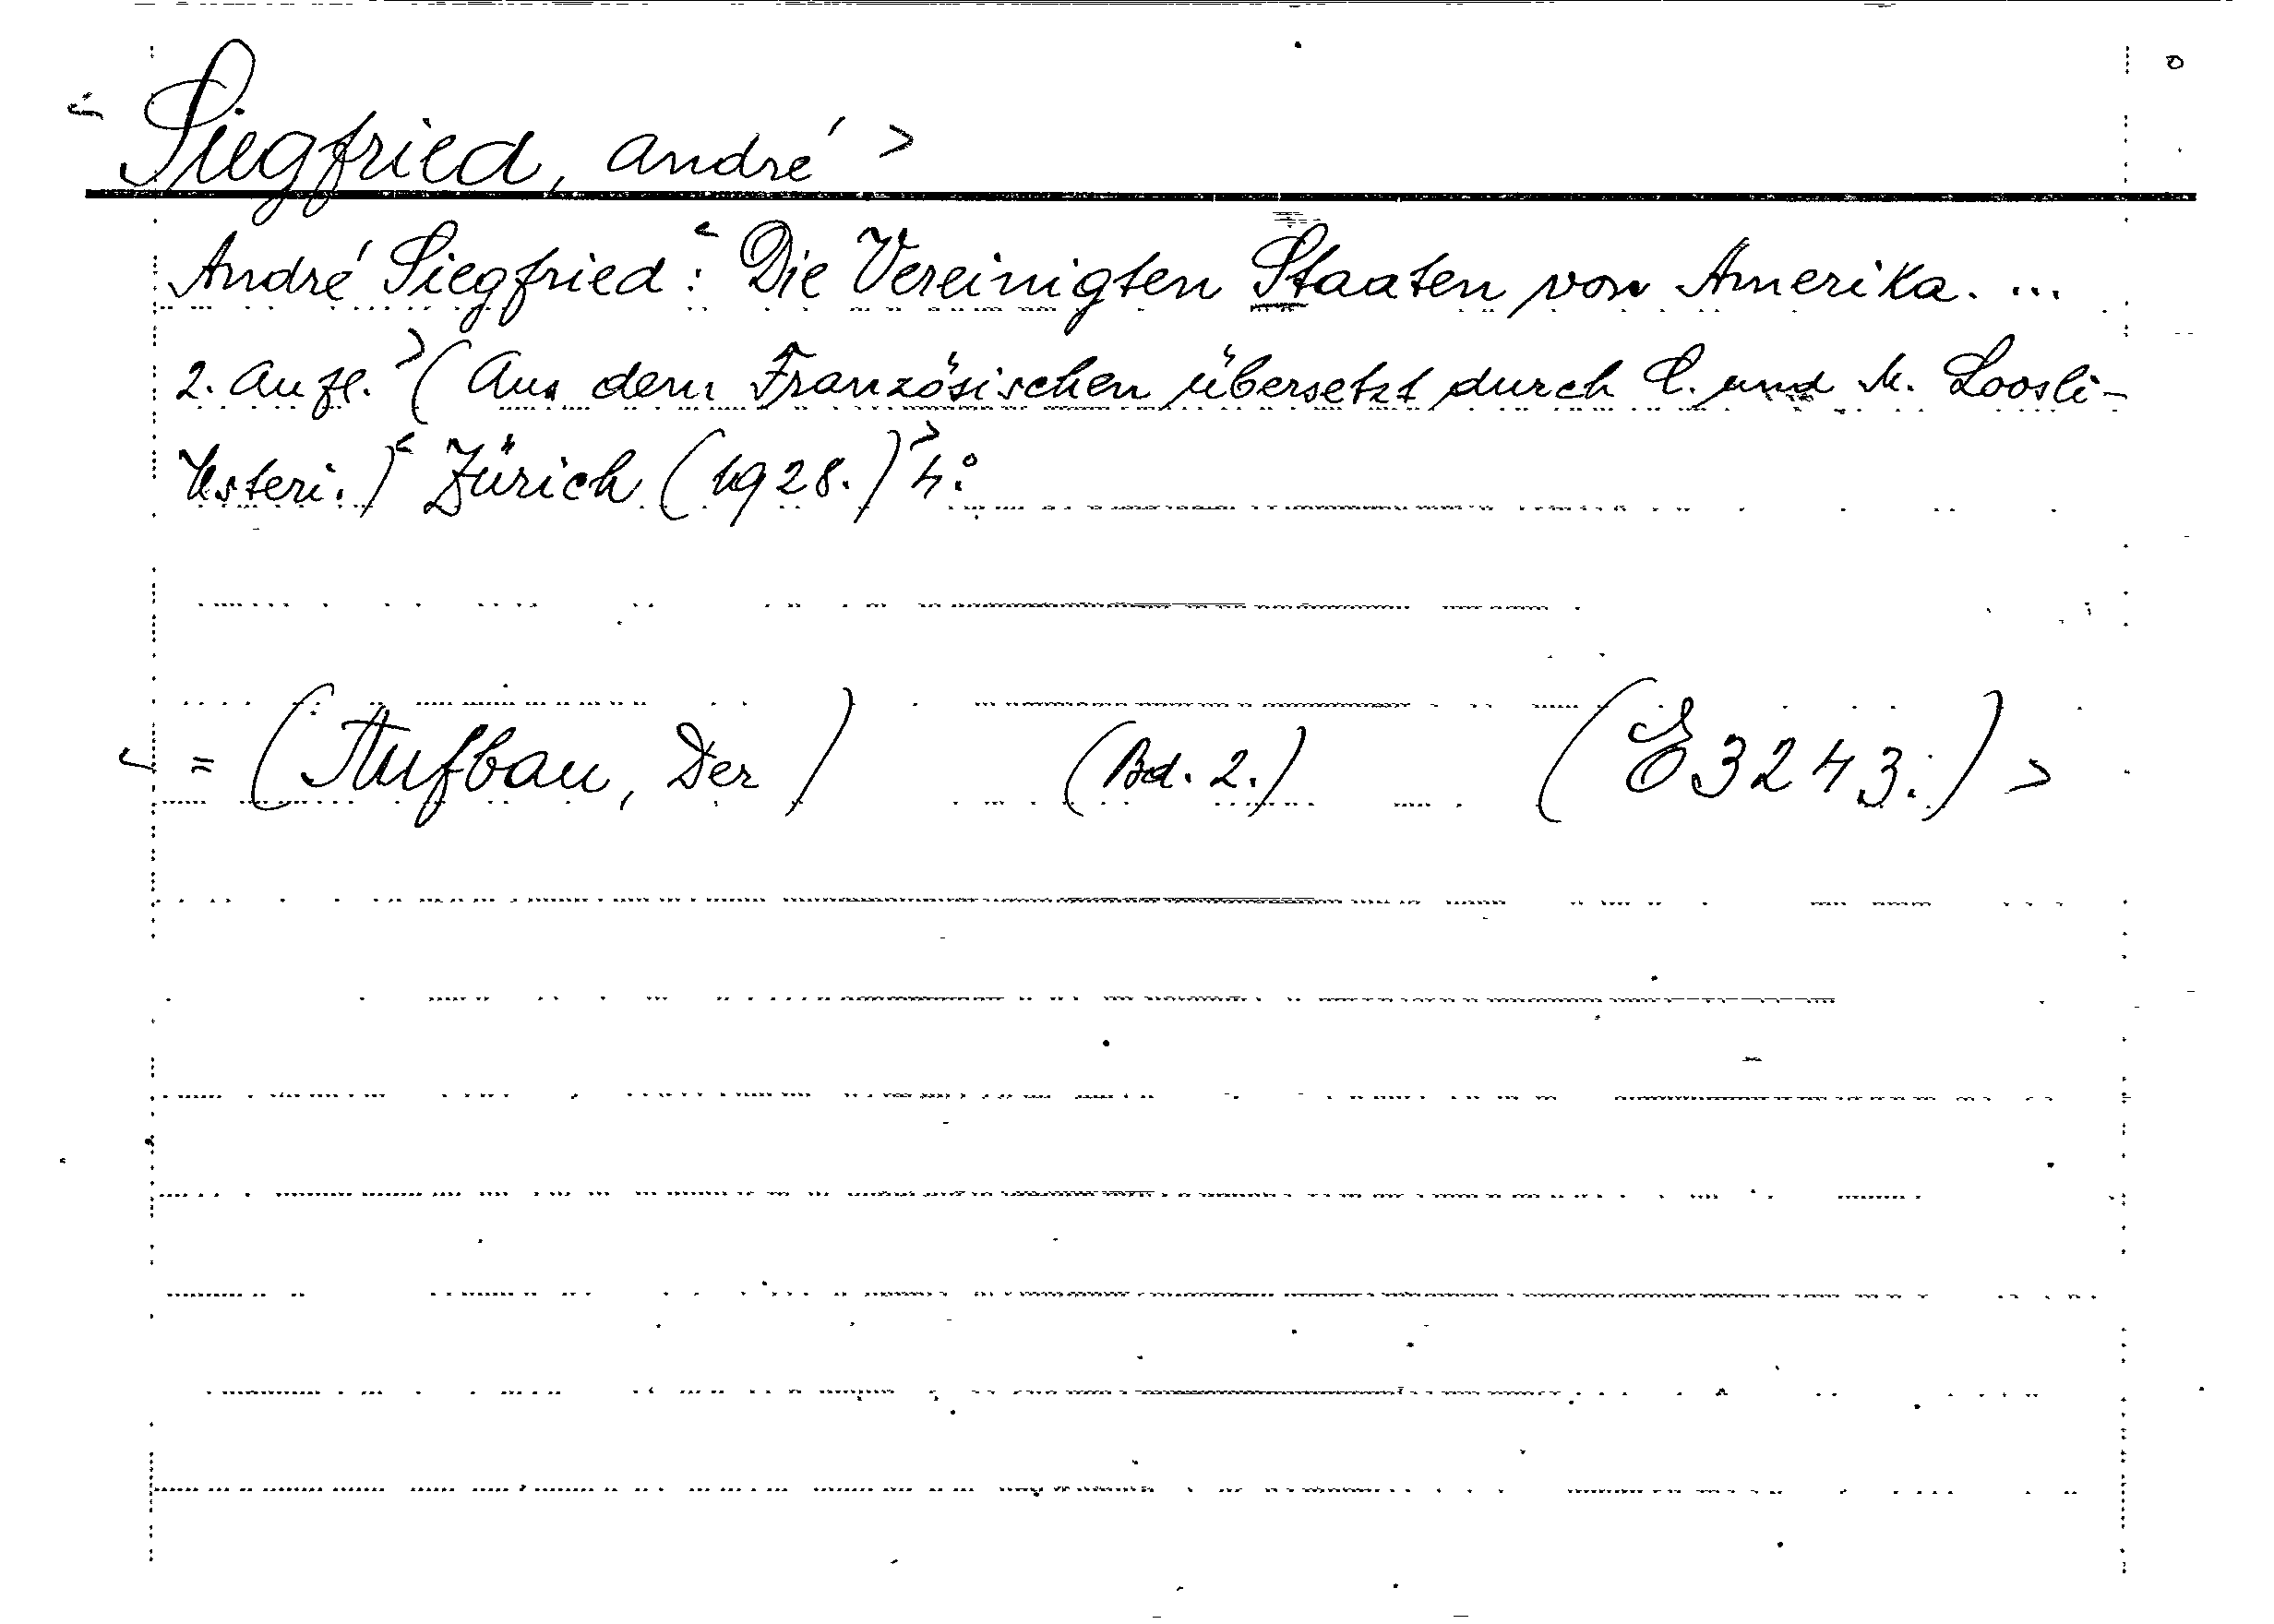 < Siegfried, André >
André Siegfried: < Die Vereinigten Staaten von Amerika. ...
2. Aufl. > (Aus dem Französischen übersetzt durch C. und M. Loosli-
Usteri.) < Zürich (1928.) > 4°.
< = (Aufbau, Der) (Bd. 2.) (E 3243.) >